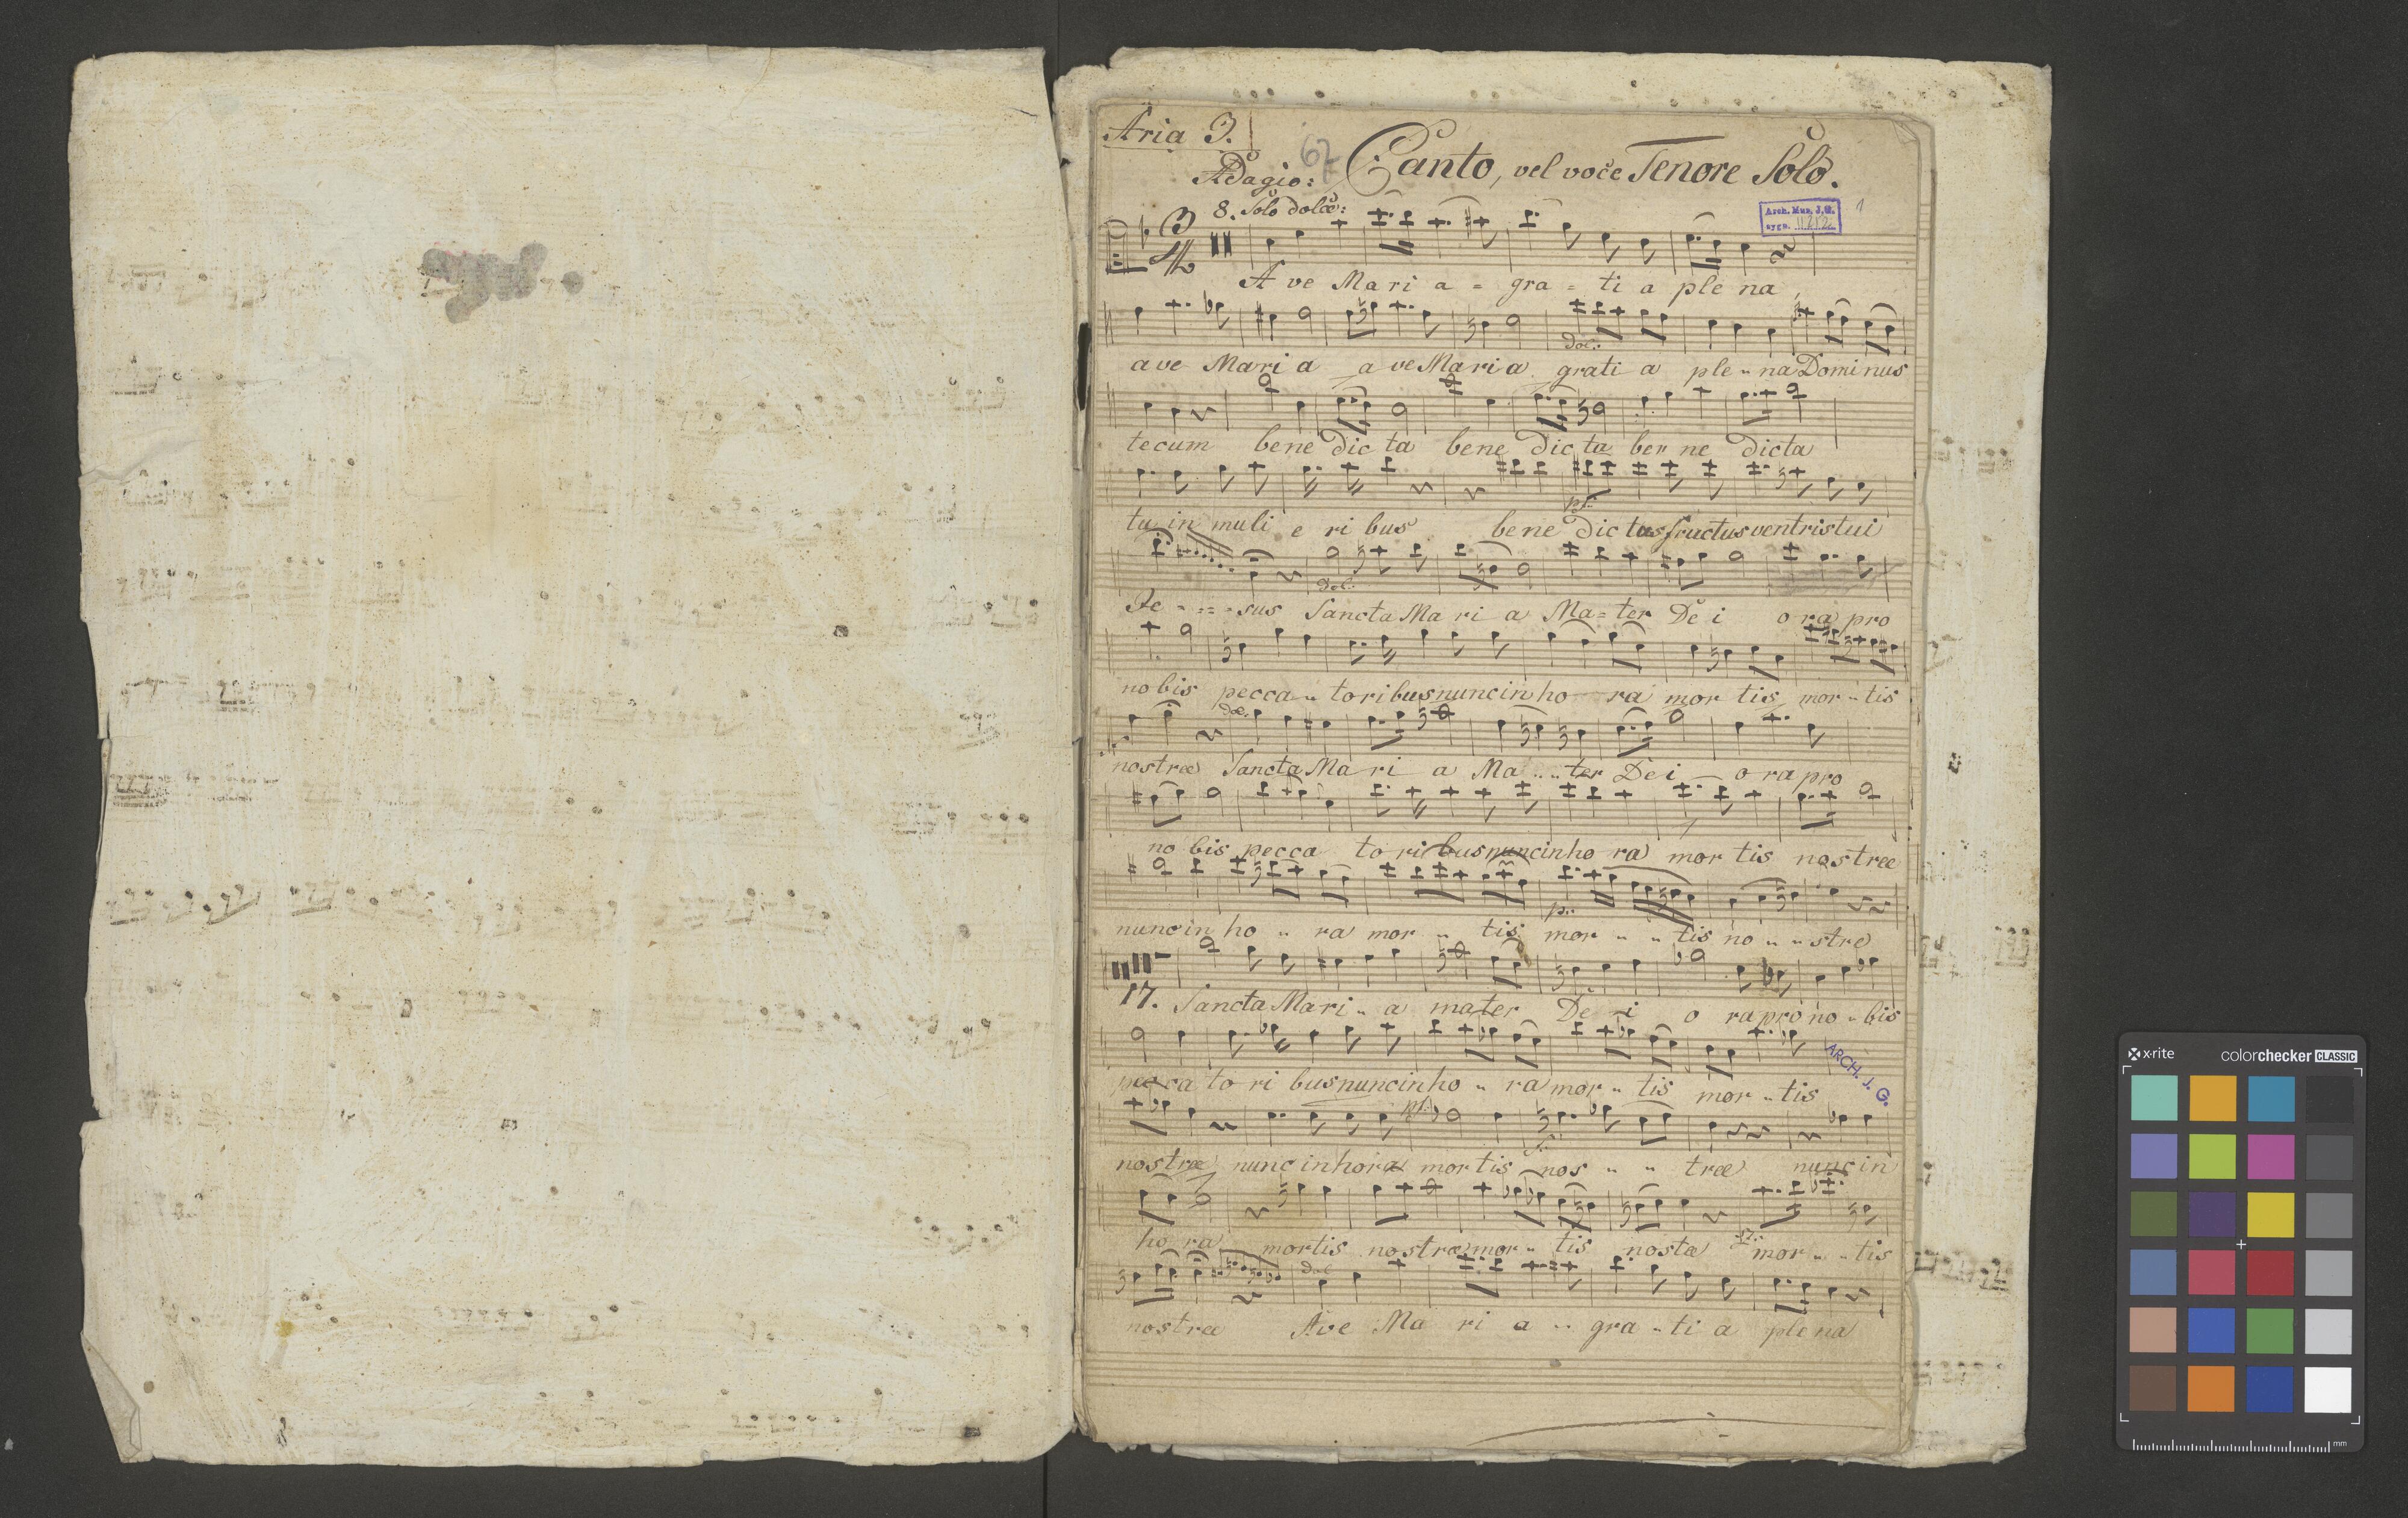 Aria 3.
67
Adagio: Canto, vel voce Tenore Solo.
8. Solo dolce:
Arch. Mus. J.G.
sygn. II 212
1
3
4
A ve Mari a = gra = ti a ple na
dol:
ave Mari a a ve Mari a grati a ple " na Dominus
tecum bene dic ta bene dic ta ben ne dicta
tu in muli e ri bus bene dic tus fructus ventris tui
dol:
Je - == - sus Sancta Ma ri a Ma = ter De i o ra pro
nobis pecca " toribus nunc in ho ra mor tis mor " tis
nostræ Sancta Ma ri a Ma " " ter De i o ra pro
no bis pecca to ri bus nunc in ho ra mor tis nostræ
p:
nunc in ho " ra mor " tis mor " " tis no " " stre
17. Sancta Mari " a mater De i o ra pro no " bis
pecca to ri bus nunc in ho " ra mor " tis mor " tis
ARCH. J. G.
nostræ nunc in hora mortis nos " " træ nunc in
ho ra mortis nostræ mor " tis nosta mor " " tis
dol
nostræ Ave Ma ri a " gra " ti a ple na
x-rite colorchecker CLASSIC
mm